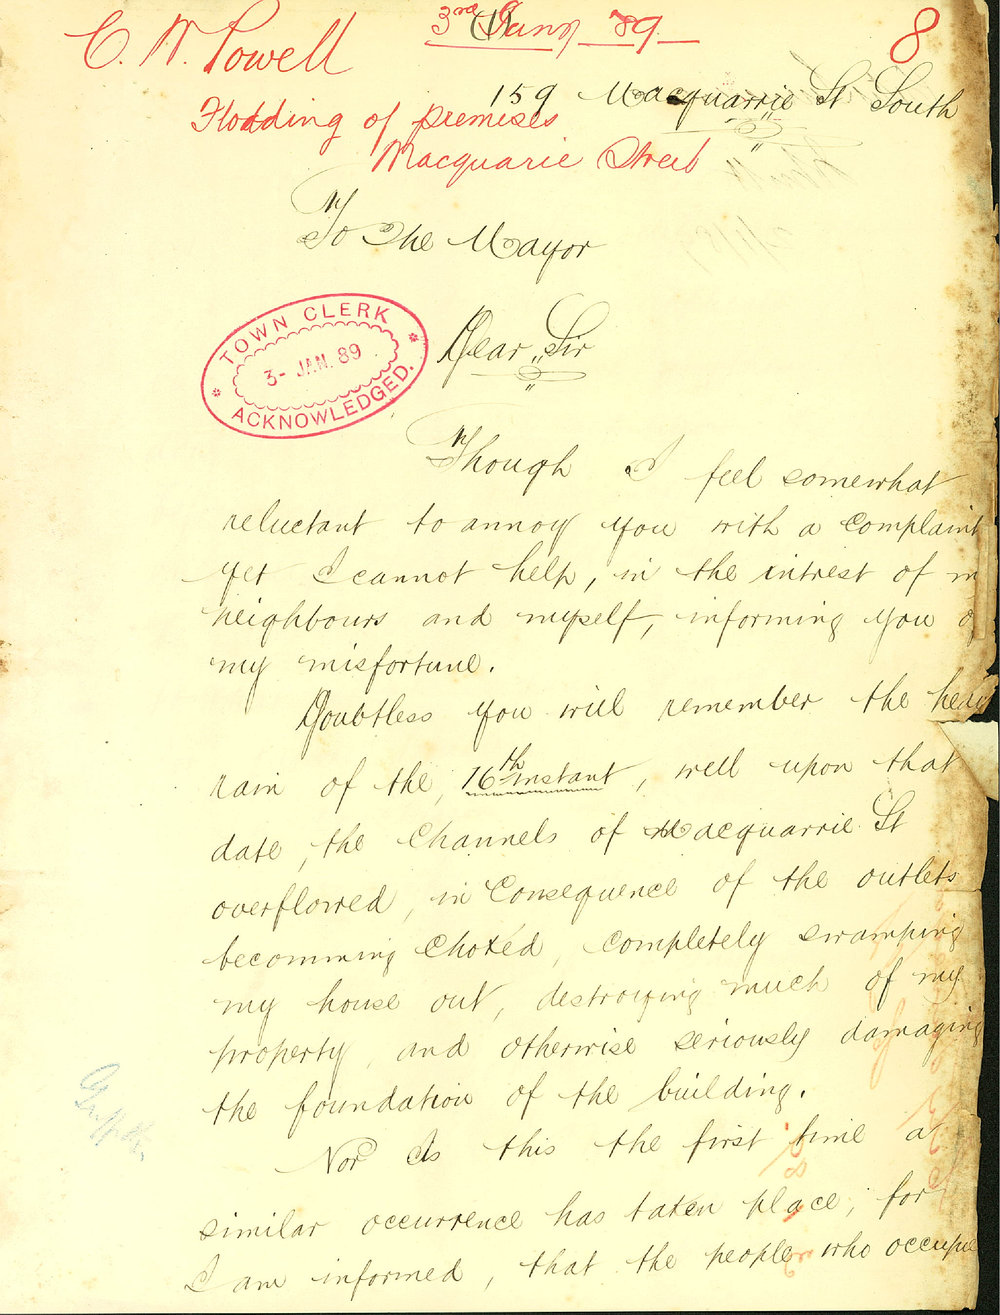 C. W. Powell
3rd Jany 89
8
159 Macquarrie St South
Flooding of premises
Macquarie Street
To The Mayor
TOWN CLERK
3- JAN. 89
ACKNOWLEDGED.
Dear Sir
Though I feel somewhat
reluctant to annoy you with a complaint
yet I cannot help, in the intrest of m
neighbours and myself, informing you o
my misfortune.
Doubtless you will remember the heav
rain of the, 16th instant, well upon that
date, the channels of Macquarrie St
overflowed, in Consequence of the outlets
becomming choked, completely swamping
my house out, destroying much of my
property, and otherwise seriously damaging
the foundation of the building.
Nor is this the first time a
similar occurrence has taken place, for
I am informed, that the people who occupie